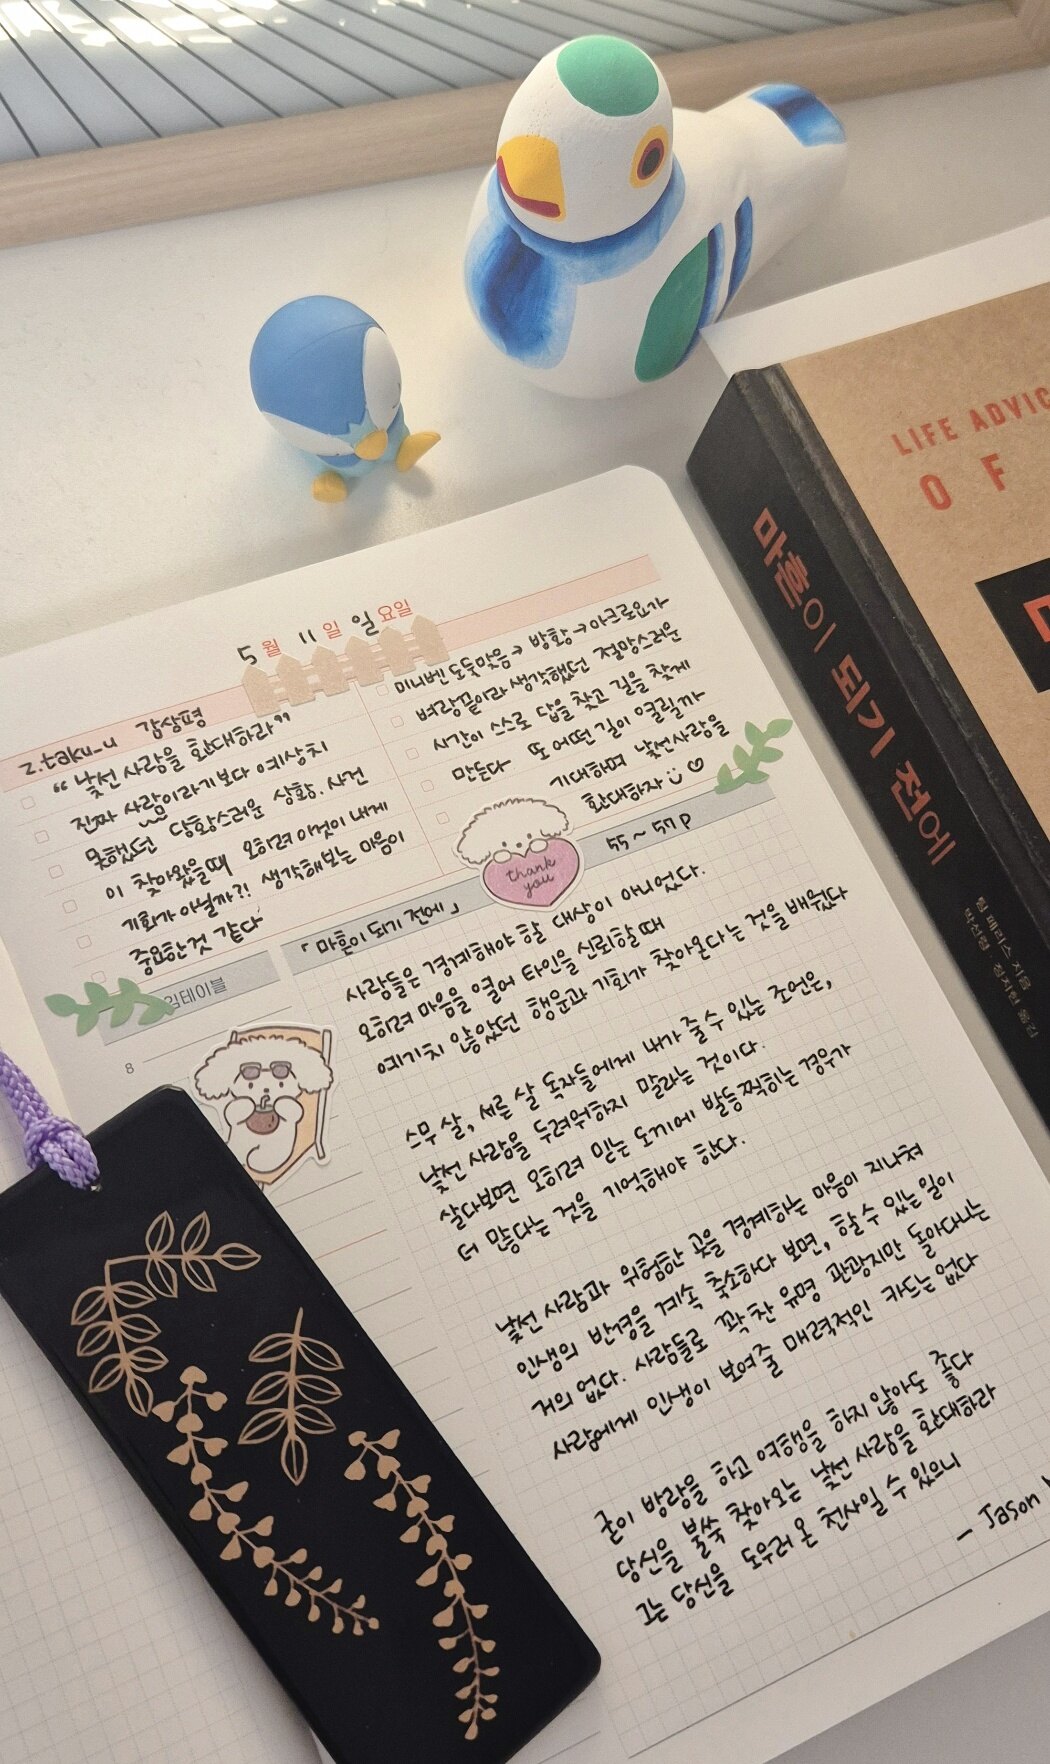 5월 11일 일요일
z.taku_u 감상평
"낯선 사람을 환대하라"
진짜 사람이라기보다 예상치
못했던 당황스러운 상황. 사건
이 찾아왔을때 오히려 이것이 내게
기회가 아닐까?! 생각해보는 마음이
중요한것 같다
미니벤 도둑맞음→방황→아크로요가
벼랑끝이라 생각했던 절망스러운
시간이 스스로 답을 찾고 길을 찾게
만든다 또 어떤 길이 열릴까
기대하며 낯선사람을
환대하자
thank
you
「마흔이 되기 전에」 55~57p
임테이블
8
사람들은 경계해야 할 대상이 아니었다.
오히려 마음을 열어 타인을 신뢰할 때
예기치 않았던 행운과 기회가 찾아온다는 것을 배웠다
스무 살, 서른 살 독자들에게 내가 줄 수 있는 조언은,
낯선 사람을 두려워하지 말라는 것이다.
살다보면 오히려 믿는 도끼에 발등찍히는 경우가
더 많다는 것을 기억해야 한다.
낯선 사람과 위험한 곳을 경계하는 마음이 지나쳐
인생의 반경을 계속 축소하다 보면, 할 수 있는 일이
거의 없다. 사람들로 꽉 찬 유명 관광지만 돌아다니는
사람에게 인생이 보여줄 매력적인 카드는 없다
굳이 방랑을 하고 여행을 하지 않아도 좋다
당신을 불쑥 찾아오는 낯선 사람을 환대하라
그는 당신을 도우러 온 천사일 수 있으니
- Jason
마흔이 되기 전에
팀 페리스 지음
박선령·정지현 옮김
LIFE ADVIC
OF